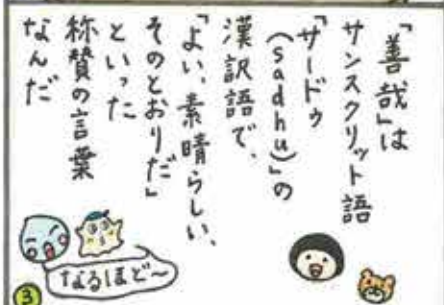 「善哉」は
サンスクリット語
「サードゥ
(sadhu)」の
漢訳語で、
「よい、素晴らしい、
そのとおりだ」
といった
称賛の言葉
なんだ
なるほど〜
3